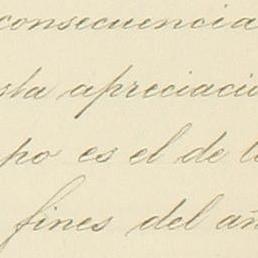 consecuencia
sta apreciació
po es el de l
fines del añ